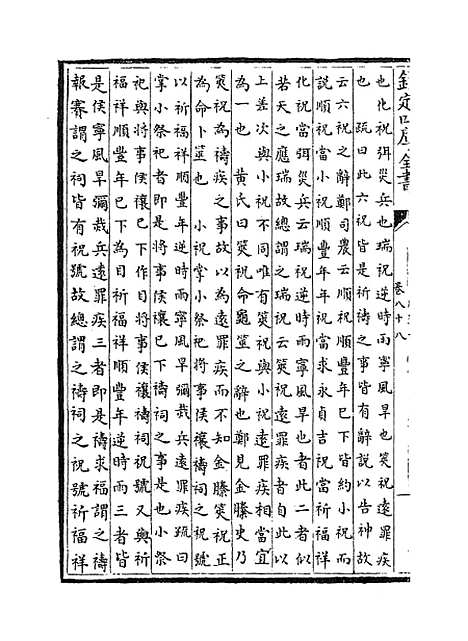 欽定四庫全書
卷八十八
也化祝弭災兵也瑞祝逆時雨寧風旱也筴祝遠罪疾
也　疏曰此六祝皆是祈禱之事皆有辭說以告神故
云六祝之辭鄭司農云順祝順豐年已下皆約小祝而
說順祝當小祝順豐年年祝當求永貞吉祝當祈福祥
化祝當弭災兵云瑞祝逆時雨寧風旱也者此二者似
若天之應瑞故總謂之瑞祝云筴祝遠罪疾者自此以
上差次與小祝不同唯有筴祝與小祝遠罪疾相當宜
為一也　黄氏曰筴祝命龜筮之辭也鄭見金縢史乃
筴祝為禱疾之事故以為遠罪疾而不知金縢筴祝正
為命卜筮也　小祝掌小祭祀將事侯禳禱祠之祝號
以祈福祥順豐年逆時雨寧風旱彌烖兵遠罪疾疏曰
掌小祭祀者即是將事侯禳已下禱祠之事是也小祭
祀與將事侯禳已下作目將事侯禳禱祠祝號又與祈
福祥順豐年已下為目祈福祥順豐年逆時雨三者皆
是侯寧風旱彌烖兵遠罪疾三者即是禱求福謂之禱
報賽謂之祠皆有祝號故總謂之禱祠之祝號祈福祥